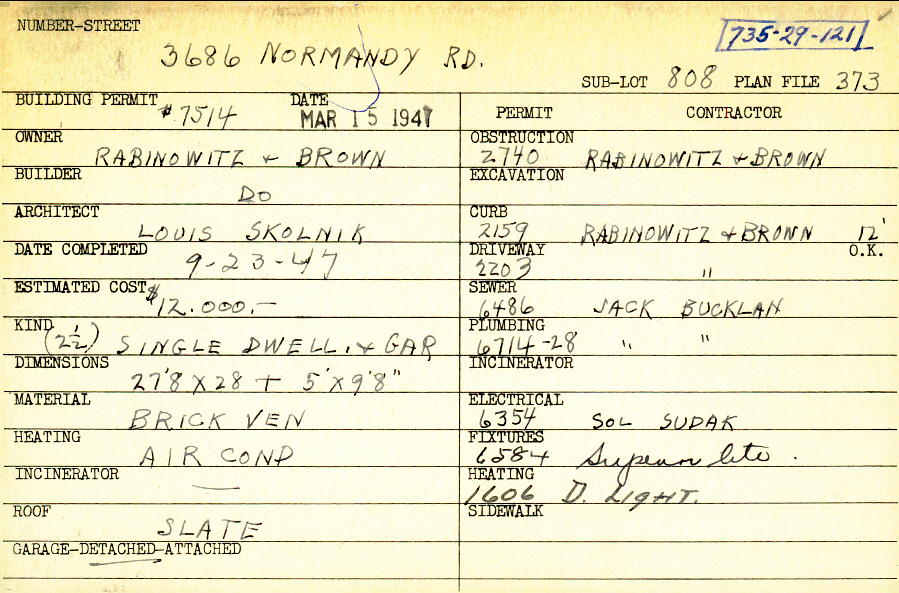 NUMBER-STREET
3686 NORMANDY RD.
735-29-121
SUB-LOT 808 PLAN FILE 373
BUILDING PERMIT #7514 DATE MAR 15 1947
OWNER RABINOWITZ + BROWN
BUILDER DO
ARCHITECT LOUIS SKOLNIK
DATE COMPLETED 9-23-47
ESTIMATED COST $12.000.-
KIND (2½) SINGLE DWELL. + GAR
DIMENSIONS 27'8 X 28 + 5' X 9'8"
MATERIAL BRICK VEN
HEATING AIR COND
INCINERATOR —
ROOF SLATE
GARAGE-DETACHED-ATTACHED
PERMIT CONTRACTOR
OBSTRUCTION
2740 RABINOWITZ + BROWN
EXCAVATION
CURB
2159 RABINOWITZ + BROWN 12'
DRIVEWAY O.K.
2203 "
SEWER
6486 JACK BUCKLAN
PLUMBING
6714-28' " "
INCINERATOR
ELECTRICAL
6354 SOL SUDAK
FIXTURES
6584 lite.
HEATING
1606 D. LIGHT.
SIDEWALK